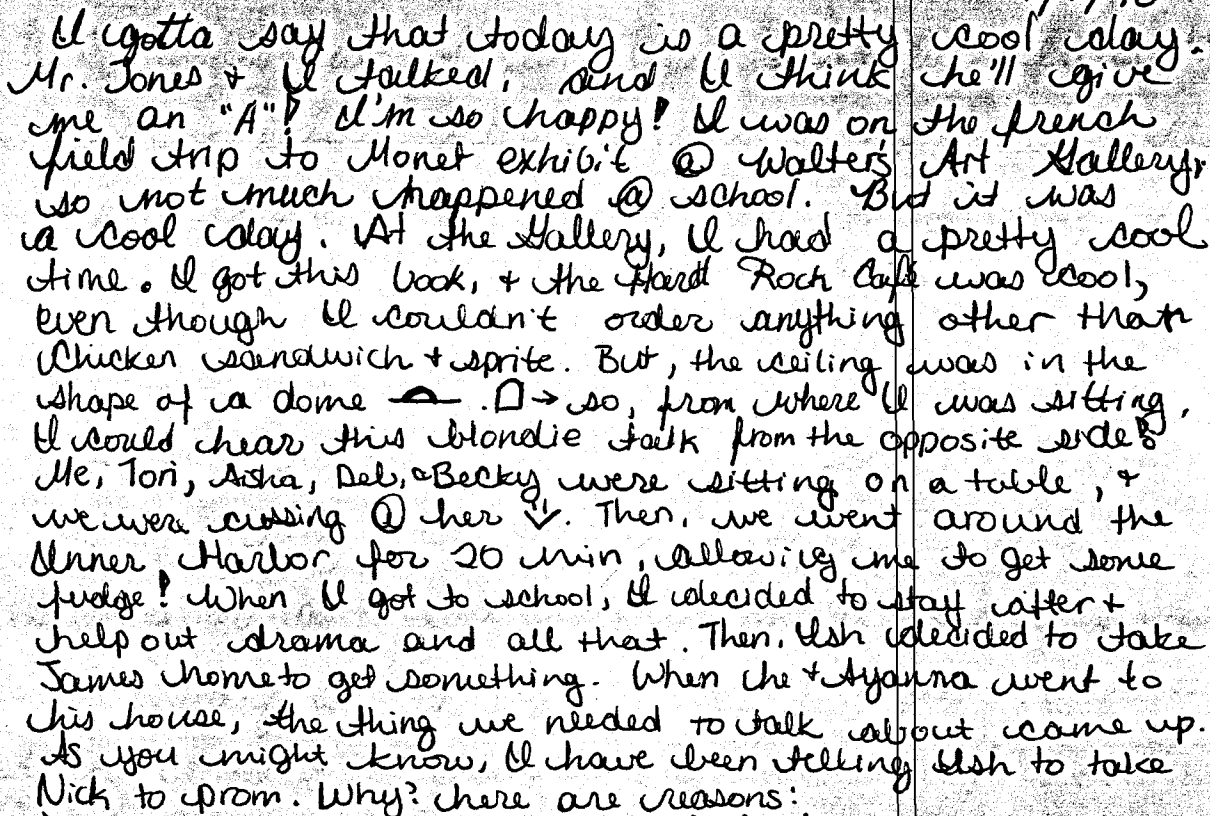 I gotta say that today is a pretty cool day.
Mr. Jones + I talked, and I think he'll give
me an "A"! I'm so happy! I was on the french
field trip to Monet exhibit @ Walter's Art Gallery,
so not much happened @ school. But it was
a cool day. At the Gallery, I had a pretty cool
time. I got this book, + the Hard Rock Café was cool,
even though I couldn't order anything other than
Chicken sandwich + sprite. But, the ceiling was in the
shape of a dome . → so, from where I was sitting,
I could hear this blondie talk from the opposite side!
Me, Tori, Aisha, Deb, + Becky were sitting on a table, +
we were cussing @ her. Then, we went around the
Inner Harbor for 20 min, allowing me to get some
fudge! When I got to school, I decided to stay after +
help out drama and all that. Then, Ush decided to take
James home to get something. When he + Ayanna went to
his house, the thing we needed to talk about came up.
As you might know, I have been telling Ush to take
Nick to prom. Why? here are reasons: